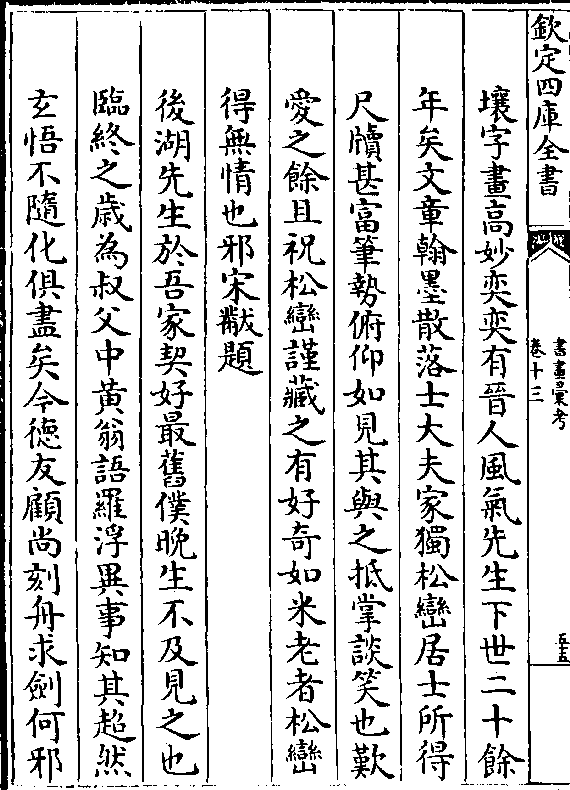 欽定四庫全書
書畫彙考
卷十三
五五
壤字畫高妙奕奕有晉人風氣先生下世二十餘
年矣文章翰墨散落士大夫家獨松巒居士所得
尺牘甚富筆勢俯仰如見其與之抵掌談笑也歎
愛之餘且祝松巒謹藏之有好奇如米老者松巒
得無情也邪宋黻題
後湖先生於吾家契好最舊僕晚生不及見之也
臨終之歳為叔父中黄翁語羅浮異事知其超然
玄悟不隨化俱盡矣今徳友顧尚刻舟求劍何邪